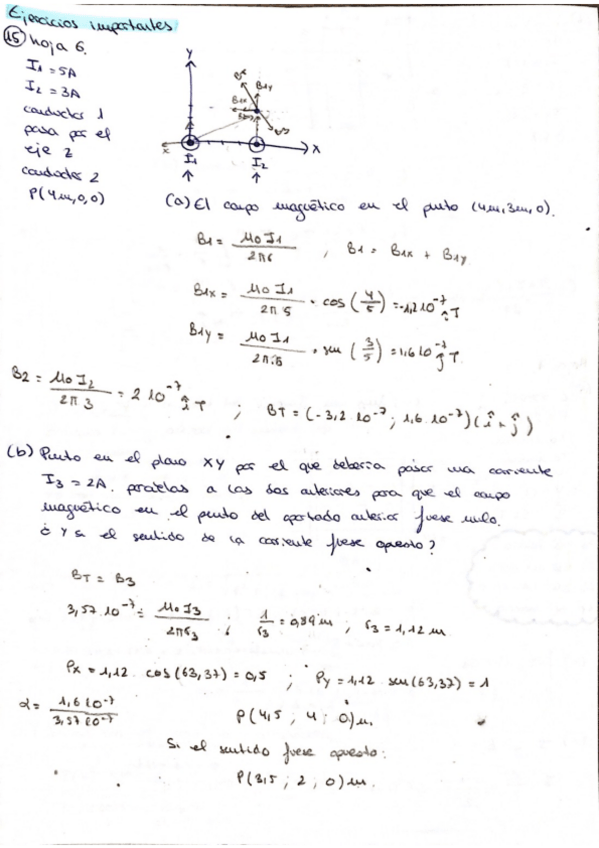 Ejercicios importantes
15 hoja 6.
I1 = 5A
I2 = 3A
conductor 1
pasa por el
eje z
conductor 2
P(4m,0,0)
Y
B1y
B1x
X
I1
I2
(a) El campo magnético en el punto (4m,3m,0).
B1 = μ0 I1 / 2π6 , B1 = B1x + B1y
B1x = μ0 I1 / 2π 5 · cos (4/5) = -1,2 10^-7 î T
B1y = μ0 I1 / 2π·5 · sen (3/5) = 1,6 10^-7 ĵ T
B2 = μ0 I2 / 2π 3 = 2 10^-7 î T ; BT = (-3,2 10^-7 ; 1,6 · 10^-7)(î + ĵ)
(b) Punto en el plano XY por el que debería pasar una corriente
I3 = 2A. paralelas a las dos anteriores para que el campo
magnético en el punto del apartado anterior fuese nulo.
¿Y si el sentido de la corriente fuese opuesto?
BT = B3
3,57 · 10^-7 = μ0 I3 / 2π r3 ; 1/r3 = 0,89 m , r3 = 1,12 m.
Px = 1,12 · cos (63,37) = 0,5 ; Py = 1,12 · sen (63,37) = 1
α = 1,6 10^-7 / 3,57 10^-7
P(4,5 ; 4 ; 0) m.
Si el sentido fuese opuesto:
P(3,5 ; 2 ; 0) m.